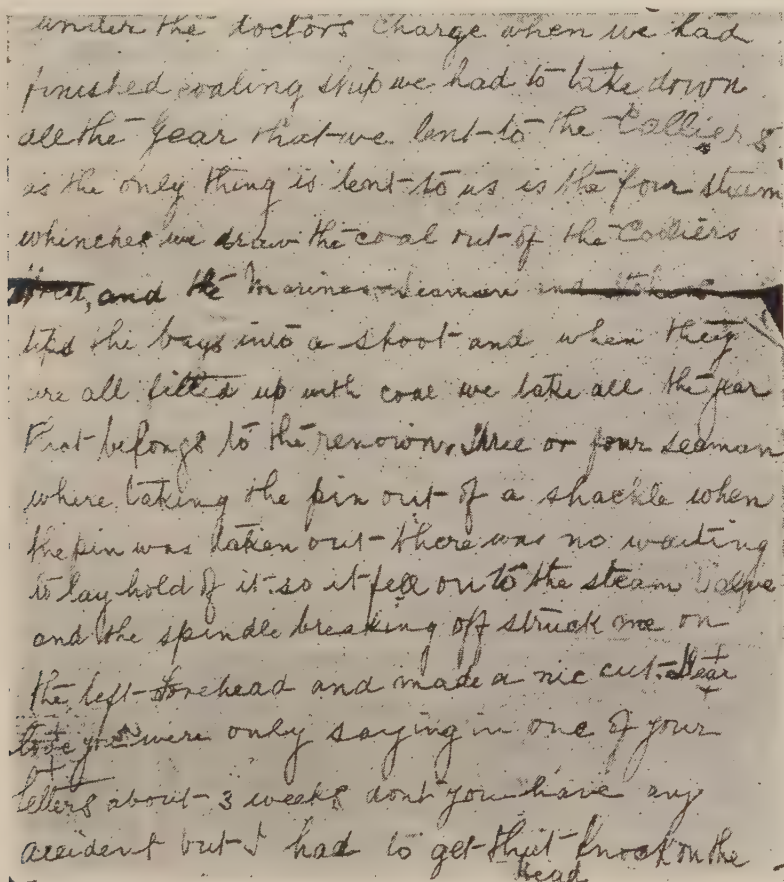 under the doctors charge when we had
finished coaling ship we had to take down
all the gear that we lent to the Collier &
as the only thing is lent to us is the four steam
whinches we draw the coal out of the Colliers
and the Marines Seamen and
the bags into a shoot and when they
are all filled up with coal we take all the gear
that belongs to the renown. three or four seaman
where taking the pin out of a shackle when
the pin was taken out there was no waiting
to lay hold of it so it fell on to the steam
and the spindle breaking off struck me on
the left forehead and made a nic cut. Dear
love you were only saying in one of your
letters about 3 weeks dont you have any
accident but I had to get that knock on the
Head